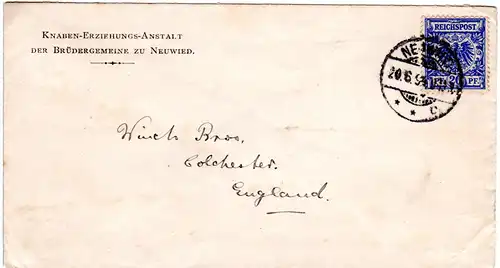 KNABEN-ERZIEHUNGS-ANSTALT
DER BRÜDERGEMEINE ZU NEUWIED.
REICHSPOST
20.6.9
* * c.
PF. 20 PF.
Winch Bros,
Colchester.
England.